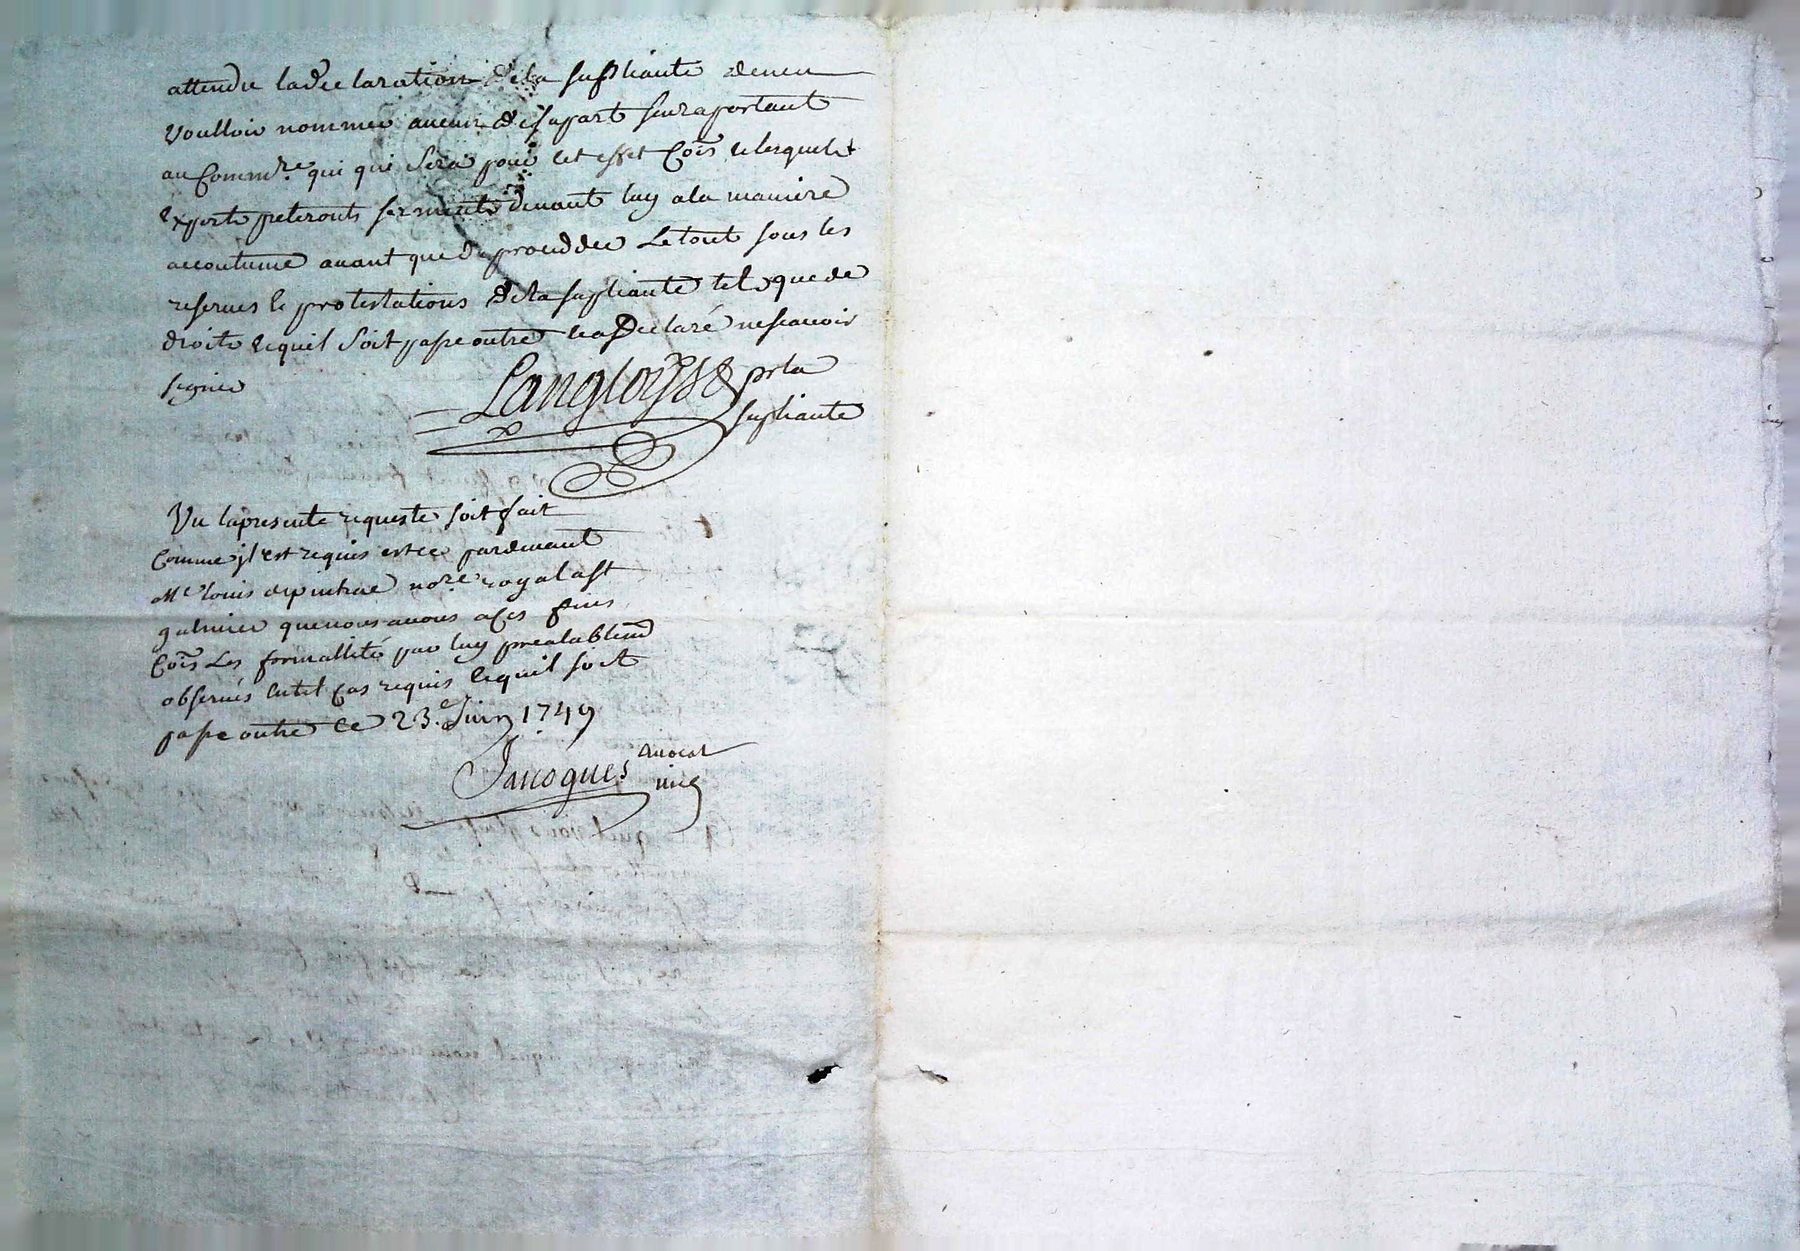 attendu la declaration de la supliante de n'en
voulloir nommer aucun de sa part s'en raportant
au Comm.re qui qui sera pour cet effet Cois lesquels
experts preteronts serments devant luy a la maniere
accoutumé avant que de procedder Le tout sous les
reserves & protestations de la supliante tels que de
droits & quil soit passe outre & a declaré ne scavoir
signer
Langloys pr la
supliante
Vu la presente requeste soit fait
Comme jl est requis par devant
Me louis no.re royal a St
galmier que nous avons a ces fins
Cois Les formallités par luy prealablemt
observés en tel cas requis & quil soit
passe outre ce 23.e Juin 1749
Jacoques avocat